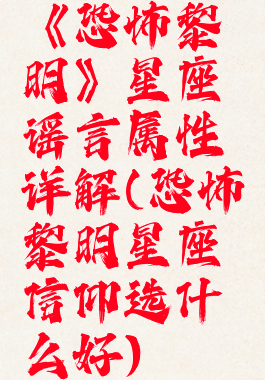 《恐怖黎
明》星座
谣言属性
详解(恐怖
黎明星座
信仰选什
么好)